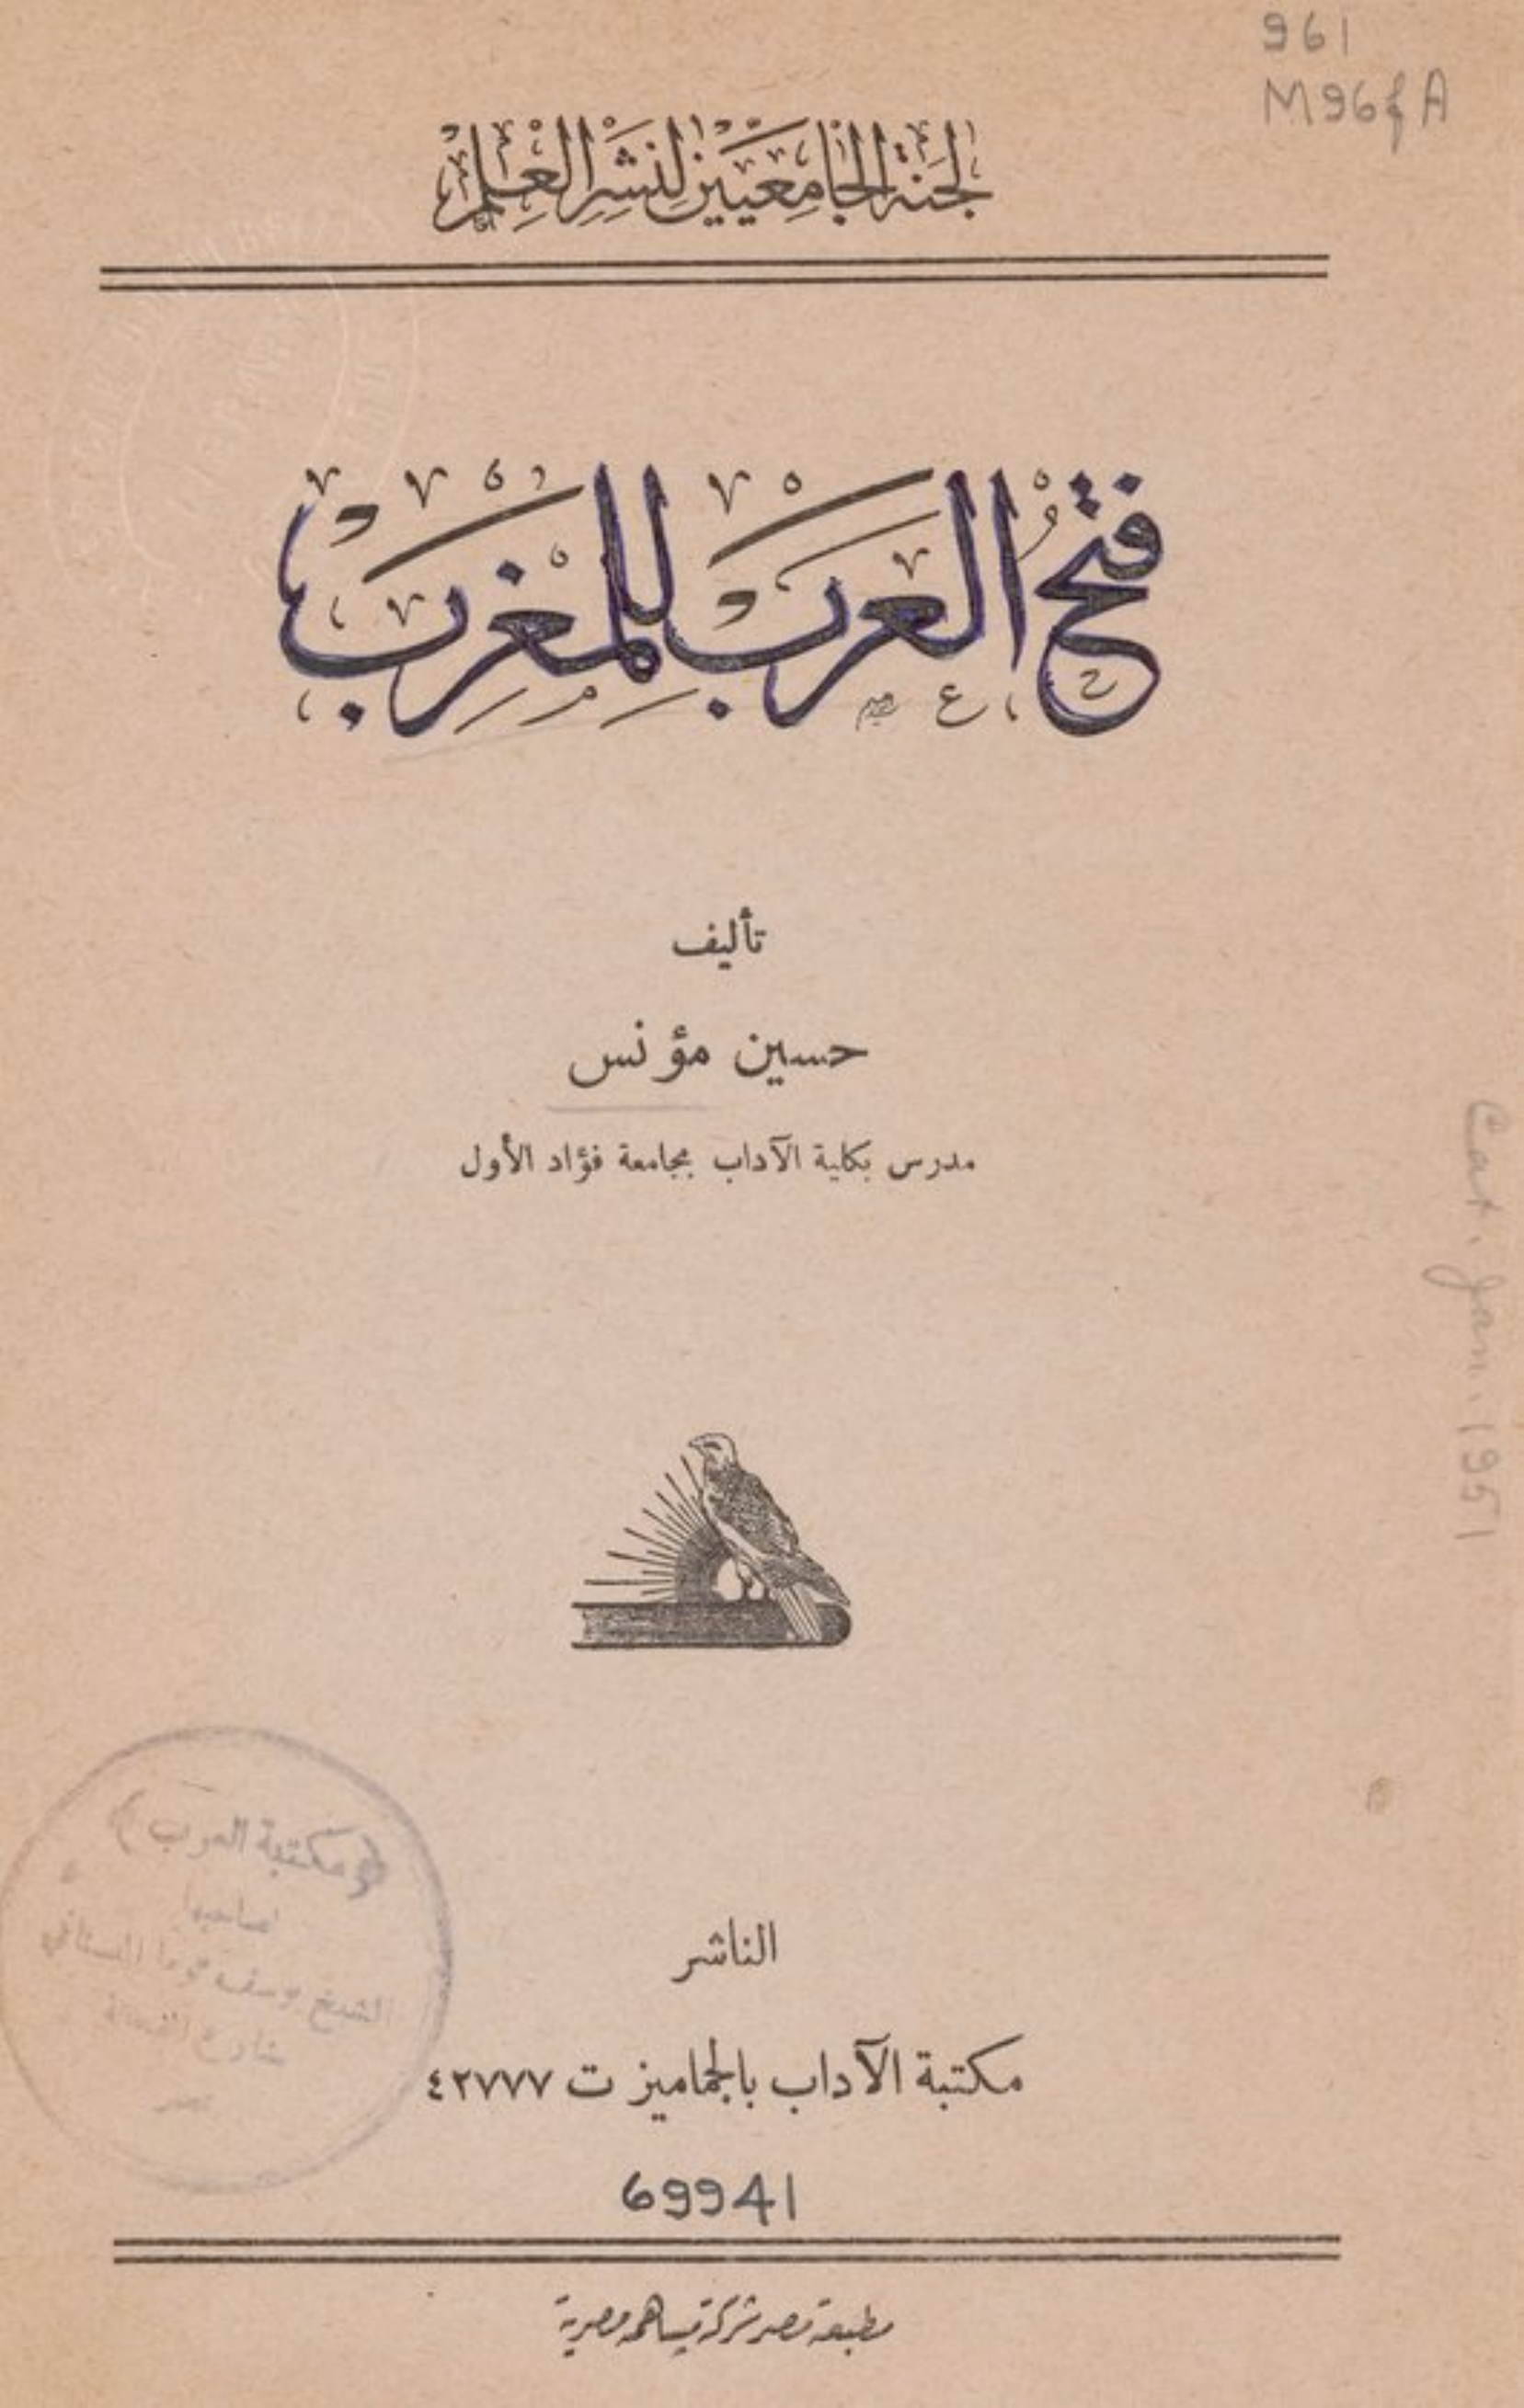 961
M96fA
لجنة الجامعيين لنشر العلم
فتح العرب للمغرب
تأليف
حسين مؤنس
مدرس بكلية الآداب بجامعة فؤاد الأول
Cat. Jan. 1951
مكتبة العرب
لصاحبها
الشيخ يوسف توما البستاني
شارع الفجالة
بمصر
الناشر
مكتبة الآداب بالجماميز ت ٤٢٧٧٧
69941
مطبعة مصر شركة مساهمة مصرية